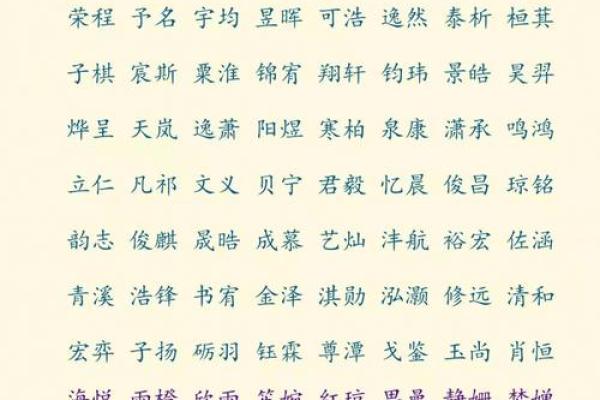 荣程 予名 宇均 昱晖 可浩 逸然 泰析 桓萁
子棋 宸斯 粟淮 锦宥 翔轩 钧玮 景皓 昊羿
烨呈 天岚 逸萧 阳煜 寒柏 泉康 潇承 鸣鸿
立仁 凡祁 文义 贝宁 君毅 忆晨 俊昌 琼铭
韵志 俊麒 晟晧 成慕 艺灿 沣航 裕宏 佐涵
青溪 浩锋 书宥 金泽 淇勋 泓灏 修远 清和
宏弈 子扬 砺羽 钰霖 尊潭 戈鉴 玉尚 肖恒
海悦 雨橙 欣雨 笑婉 红琼 思曼 静姗 梦婵